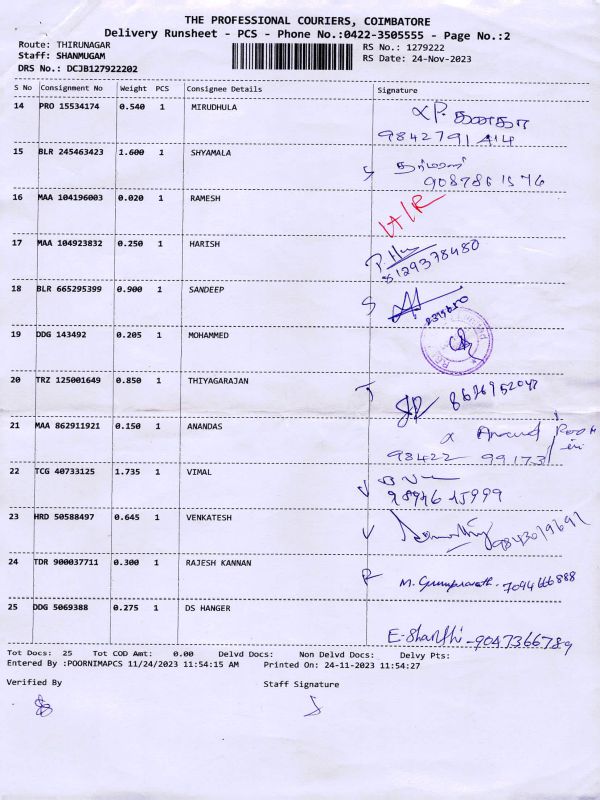 THE PROFESSIONAL COURIERS, COIMBATORE
Delivery Runsheet - PCS - Phone No.:0422-3505555 - Page No.:2
Route: THIRUNAGAR
RS No.: 1279222
Staff: SHANMUGAM
RS Date: 24-Nov-2023
DRS No.: DCJB127922202
S No Consignment No Weight PCS Consignee Details Signature
14 PRO 15534174 0.540 1 MIRUDHULA
9842791414
15 BLR 245463423 1.600 1 SHYAMALA
16 MAA 104196003 0.020 1 RAMESH
17 MAA 104923832 0.250 1 HARISH
8129378480
18 BLR 665295399 0.900 1 SANDEEP
19 DDG 143492 0.205 1 MOHAMMED
20 TRZ 125001649 0.850 1 THIYAGARAJAN
21 MAA 862911921 0.150 1 ANANDAS
Anand
98422 99173
22 TCG 40733125 1.735 1 VIMAL
23 HRD 50588497 0.645 1 VENKATESH
24 TDR 900037711 0.300 1 RAJESH KANNAN
7094666888
25 DDG 5069388 0.275 1 DS HANGER
E-Shanthi - 9047366789
Tot Docs: 25 Tot COD Amt: 0.00 Delvd Docs: Non Delvd Docs: Delvy Pts:
Entered By :POORNIMAPCS 11/24/2023 11:54:15 AM Printed On: 24-11-2023 11:54:27
Verified By Staff Signature